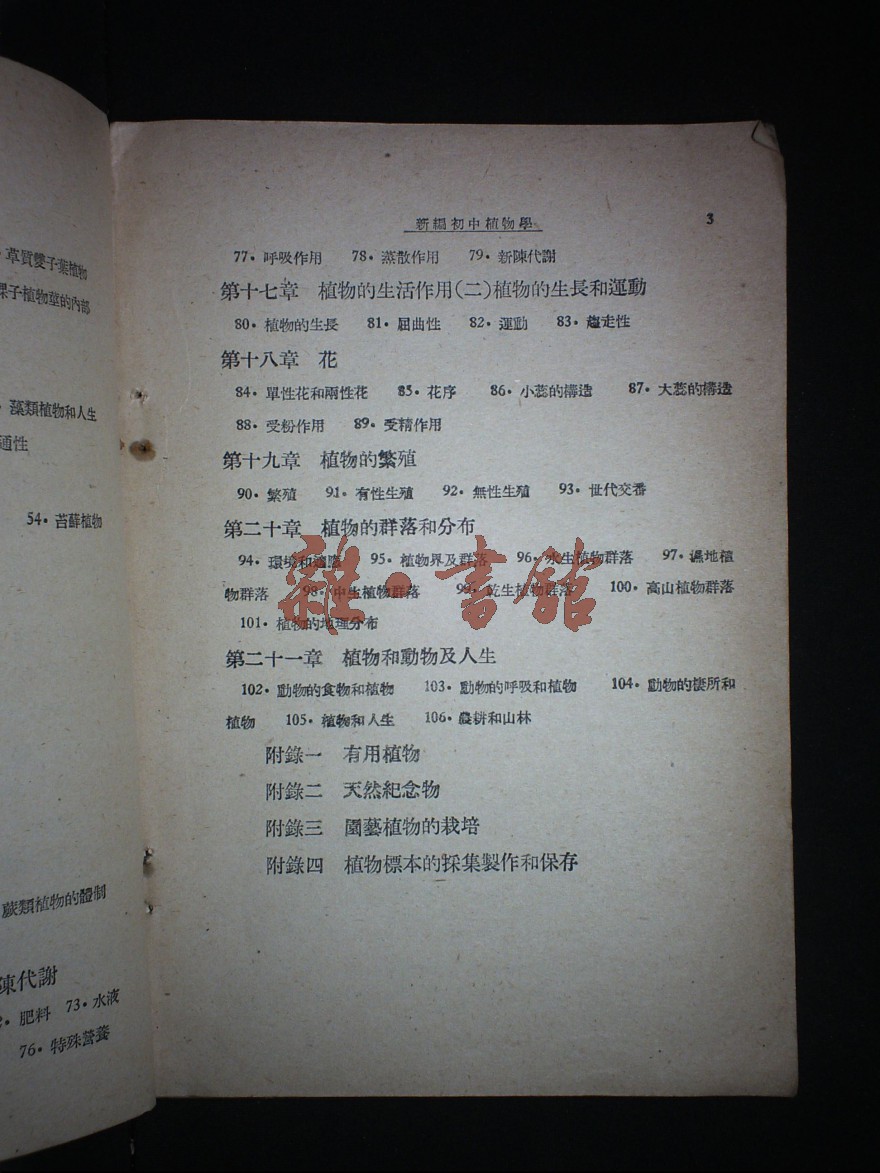 草質雙子葉植物
裸子植物莖的內部
藻類植物和人生
通性
54·苔蘚植物
蕨類植物的體制
陳代謝
肥料 73·水液
76·特殊營養
新編初中植物學 3
77·呼吸作用 78·蒸散作用 79·新陳代謝
第十七章 植物的生活作用(二)植物的生長和運動
80·植物的生長 81·屈曲性 82·運動 83·趨走性
第十八章 花
84·單性花和兩性花 85·花序 86·小蕊的構造 87·大蕊的構造
88·受粉作用 89·受精作用
第十九章 植物的繁殖
90·繁殖 91·有性生殖 92·無性生殖 93·世代交番
第二十章 植物的群落和分布
94·環境和適應 95·植物界及群落 96·水生植物群落 97·濕地植
物群落 98·中生植物群落 99·乾生植物群落 100·高山植物群落
101·植物的地理分布
雜·書館
第二十一章 植物和動物及人生
102·動物的食物和植物 103·動物的呼吸和植物 104·動物的棲所和
植物 105·植物和人生 106·農耕和山林
附錄一 有用植物
附錄二 天然紀念物
附錄三 園藝植物的栽培
附錄四 植物標本的採集製作和保存